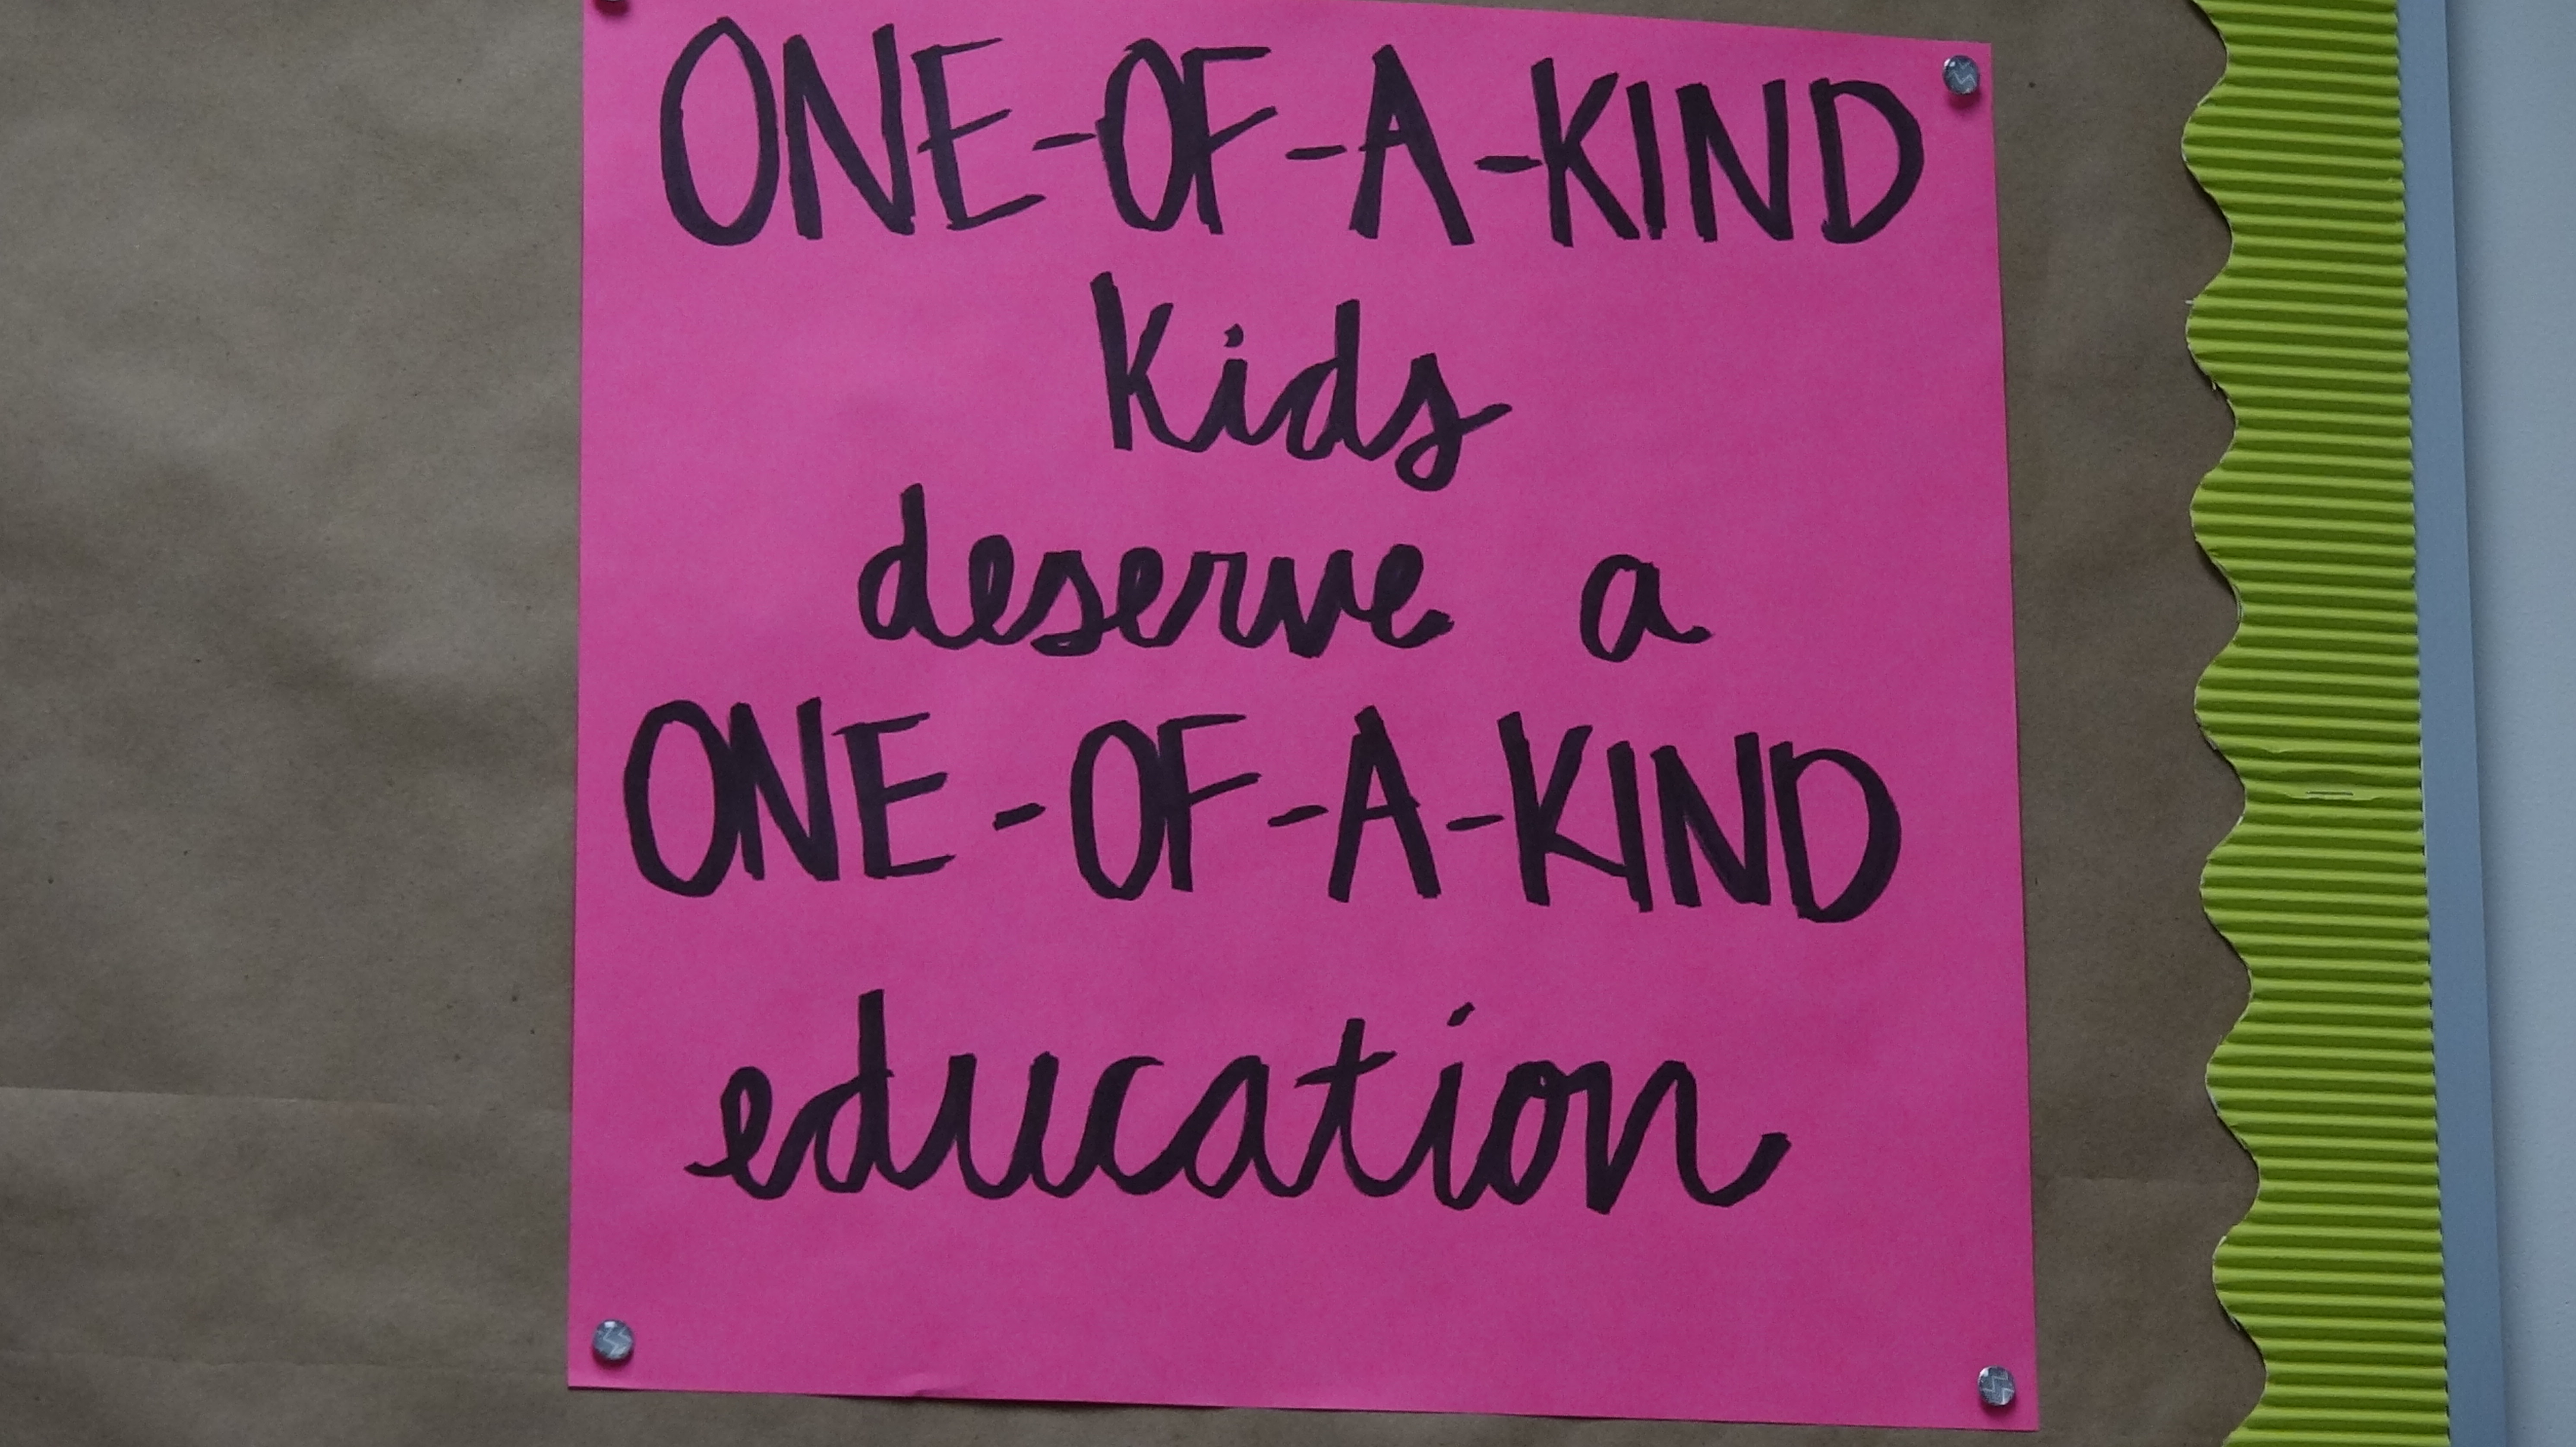 ONE-OF-A-KIND
Kids
deserve a
ONE-OF-A-KIND
education